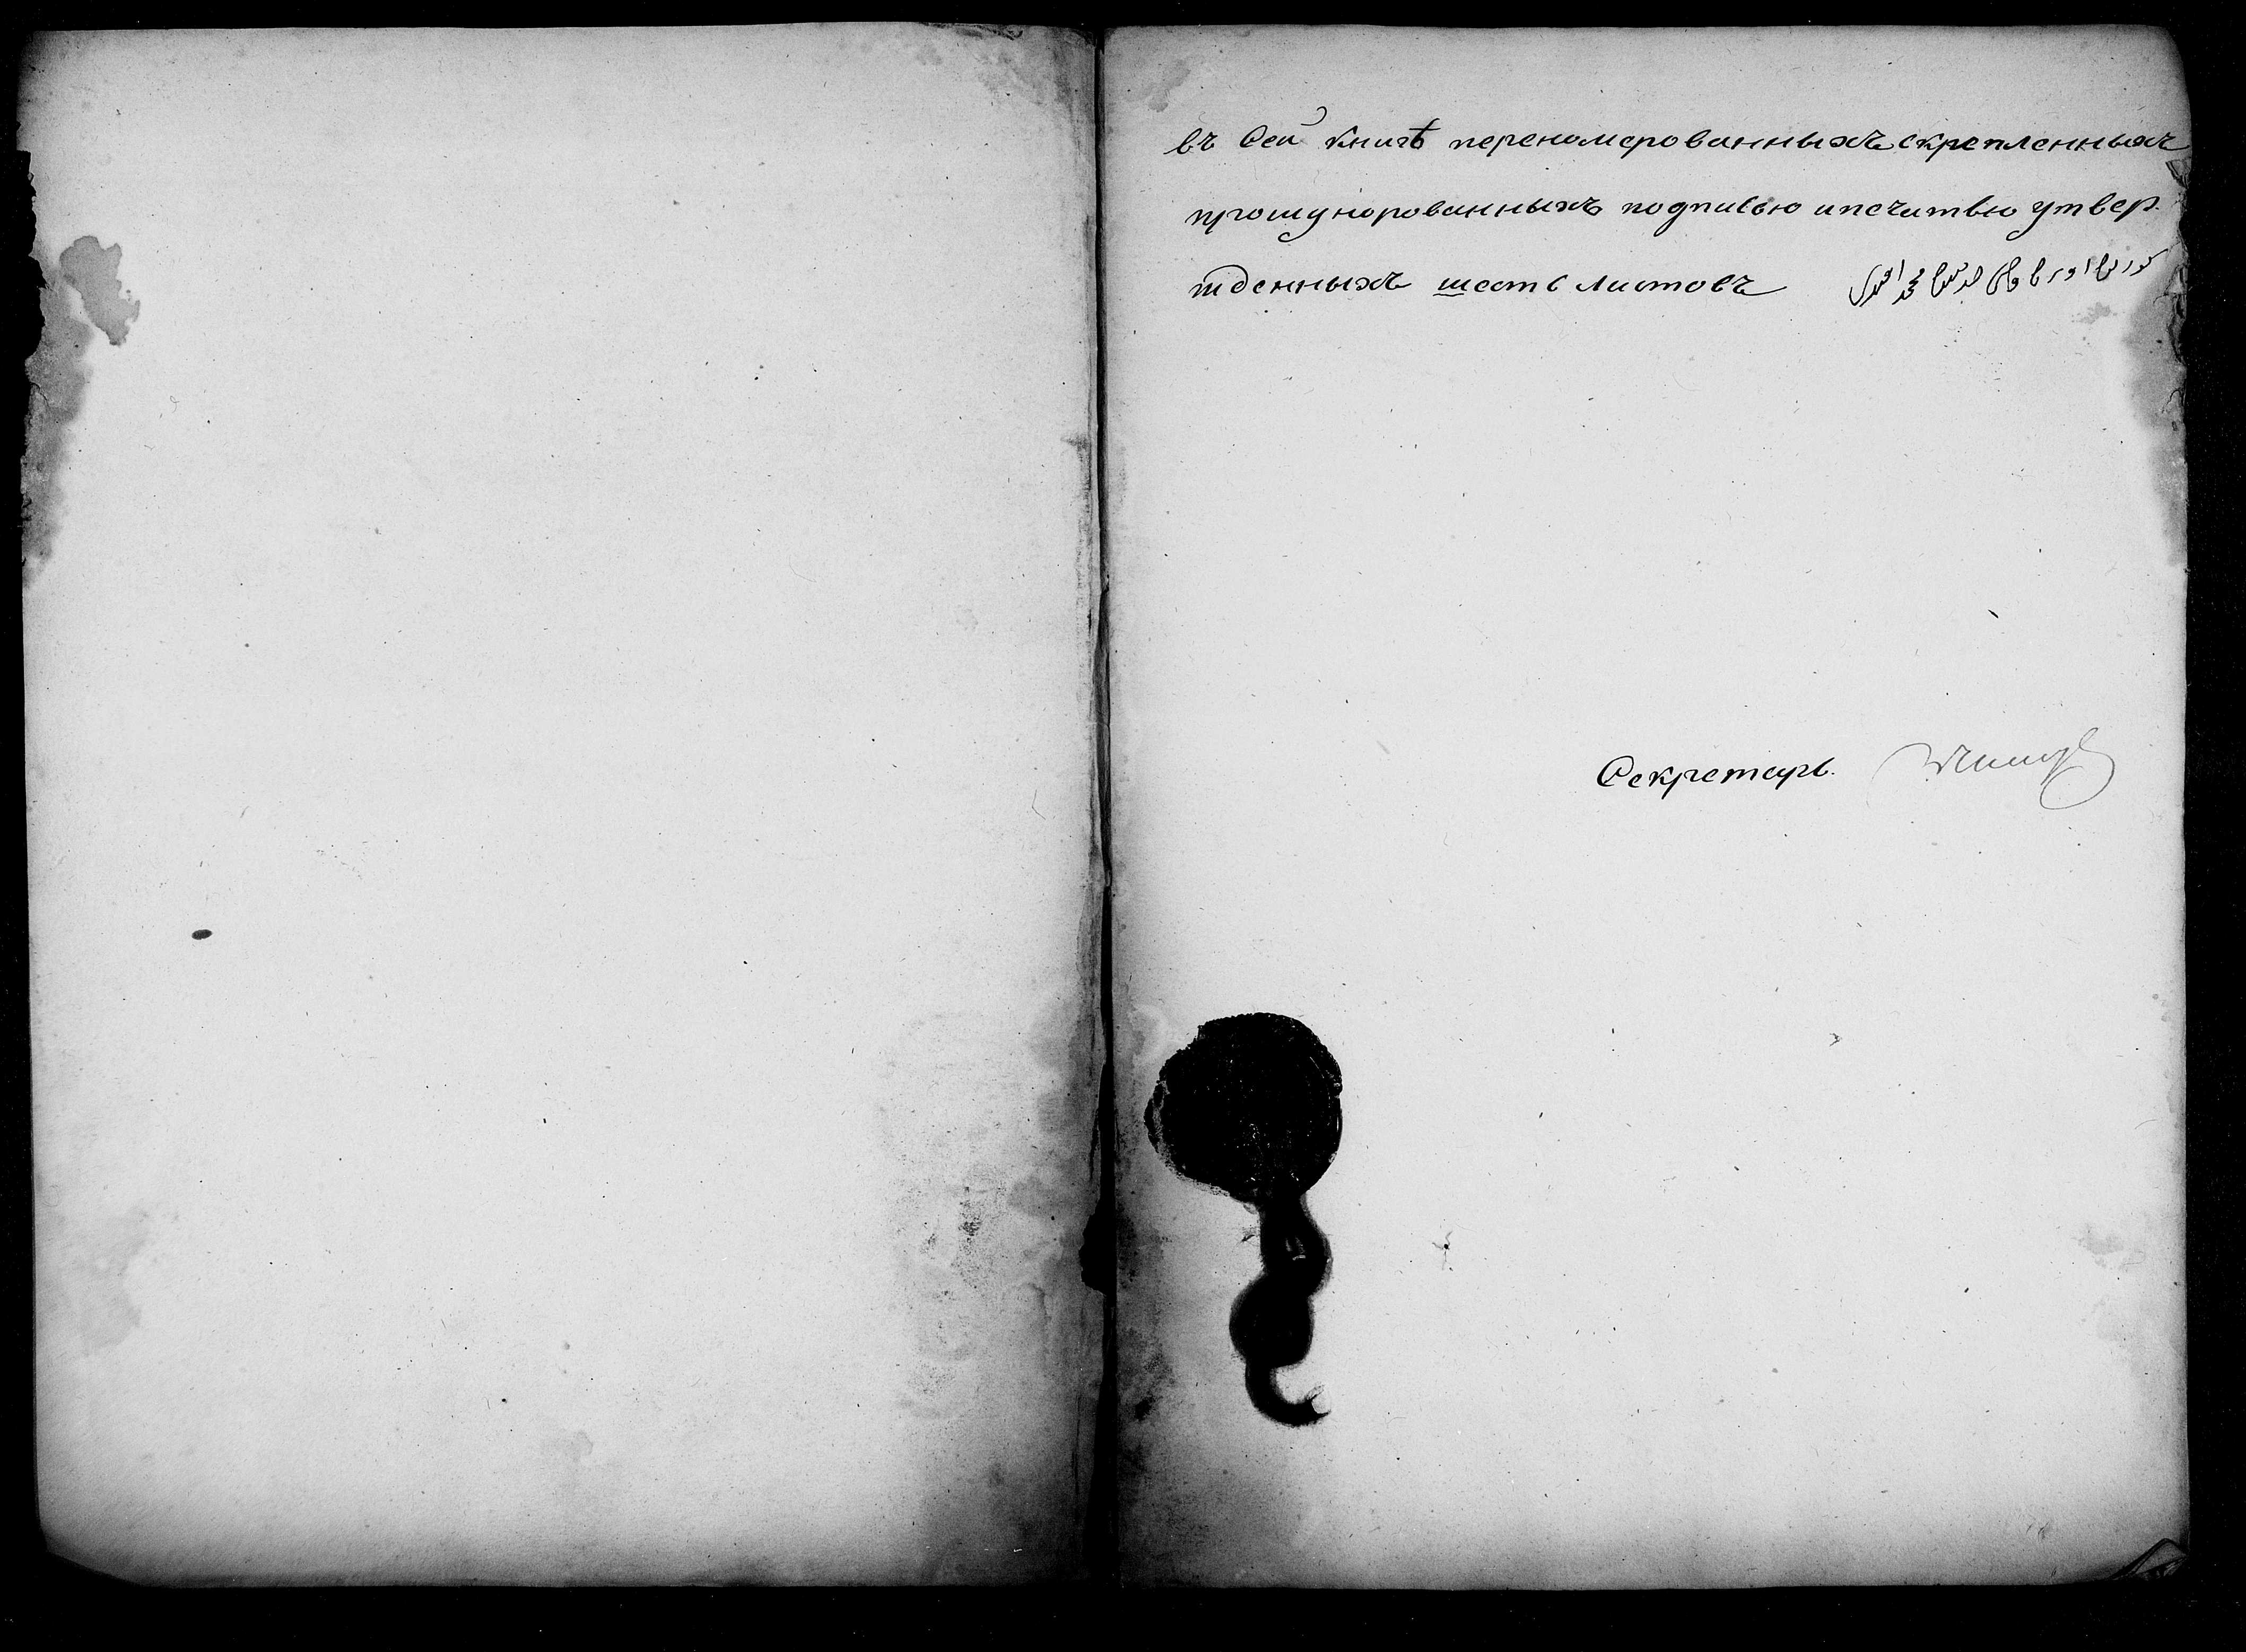 въ сей книгѣ переномерованныхъ скрепленныхъ
прошунорованныхъ подписью и печатью утвер
жденныхъ шесть листовъ
Секретарь.